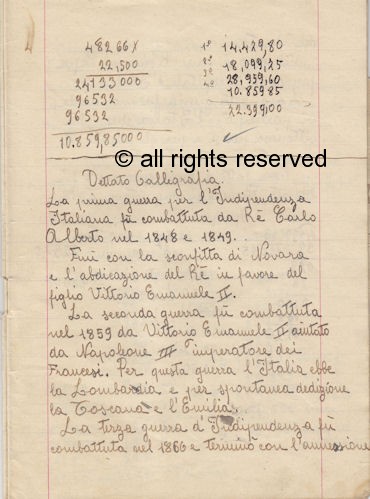 48266 x
22,500
24133000
96532
96532
10.859,85000
1° 14.429,80
2° 18,099,25
3° 28,959,60
4° 10.85985
22.399,00
© all rights reserved
Dettato Calligrafia.
La prima guerra per l'Indipendenza
Italiana fù combattuta da Rè Carlo
Alberto nel 1848 e 1849.
Finì con la sconfitta di Novara
e l'abdicazione del Rè in favore del
figlio Vittorio Emanuele II.
La seconda guerra fù combattuta
nel 1859 da Vittorio Emanuele II aiutato
da Napoleone III imperatore dei
Francesi. Per questa guerra l'Italia ebbe
la Lombardia e per spontanea dedizione
la Toscana e l'Emilia.
La terza guerra d'Indipendenza fù
combattuta nel 1866 e terminò con l'annessione